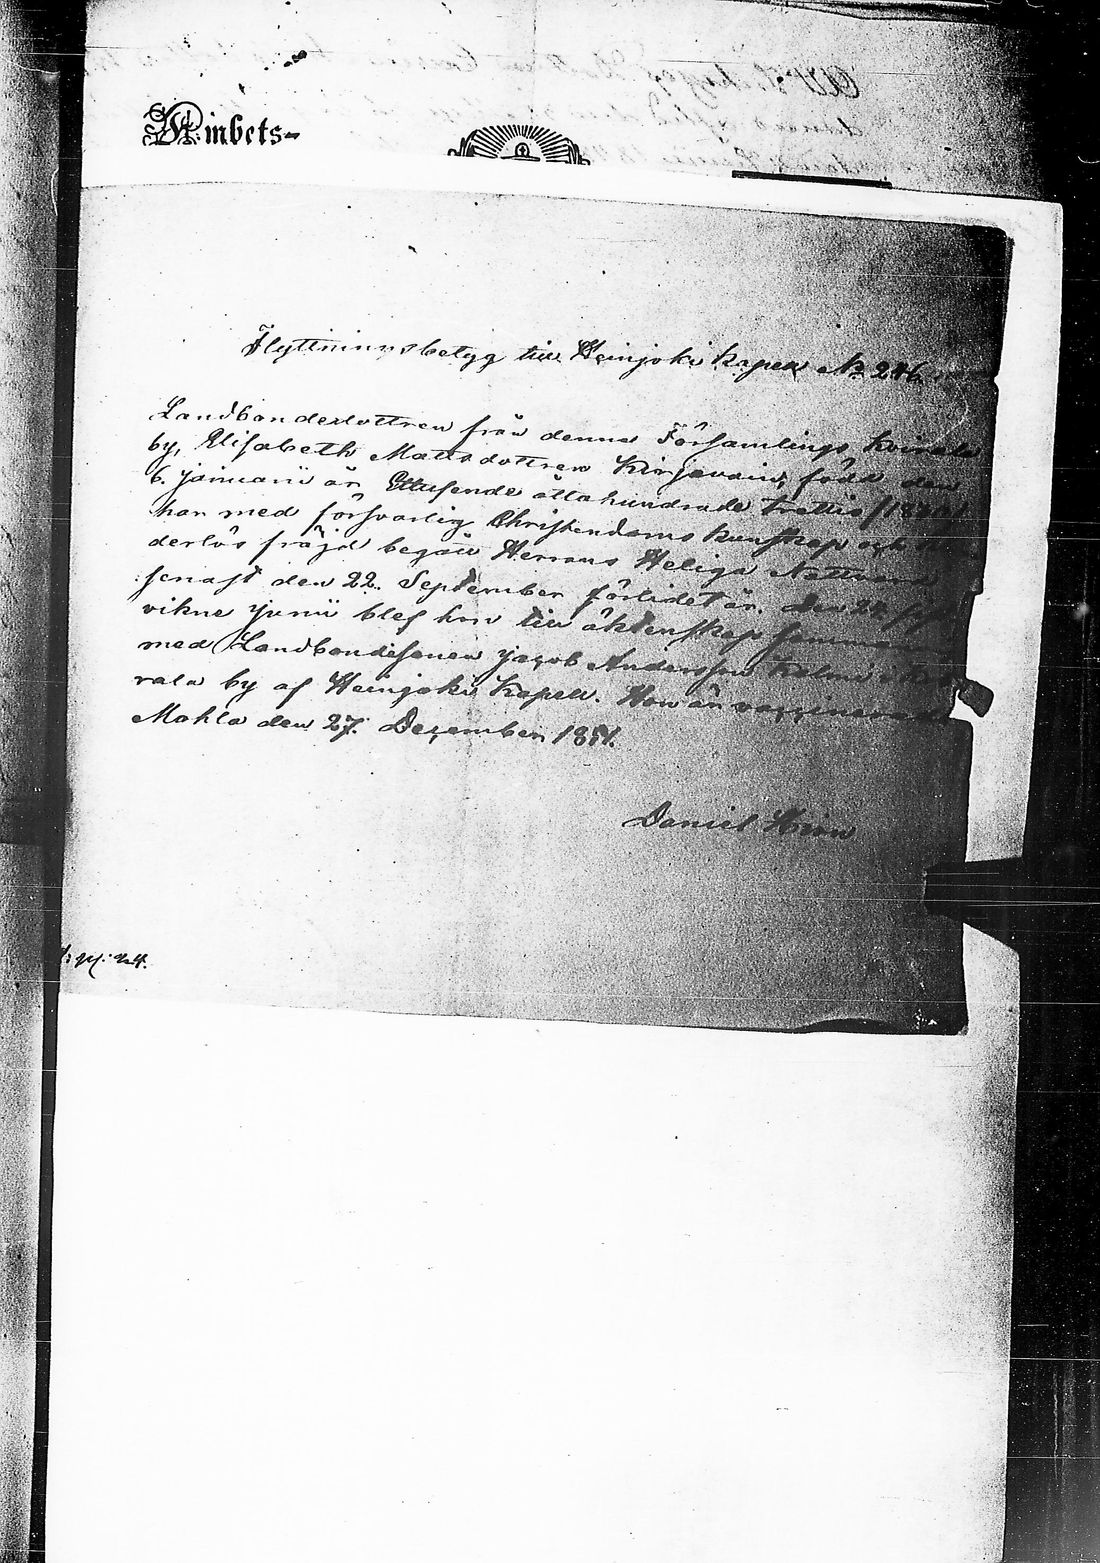 Ämbets-
Flyttninnsbetyg till Heinjoki Kapell No 246.
Landbondedottren från denna Församlings Koirala
by, Elisabeth Mattsdottren Kirjavain, född den
6. januarii år Ettusende åttahundrade trettio /1830/
har med försvarlig Christendoms kunskap och
derlös fräjd begått Herrans Heliga Nattvard
senast den 22. September förlidet år. Den 24.
vikne junii blef hon till äktenskap
med Landbondesonen Jacob Andersson
rala by af Heinjoki Kapell. Hon är vaccinerad
Mohla den 27. Dezember 1851.
Daniel Hirn